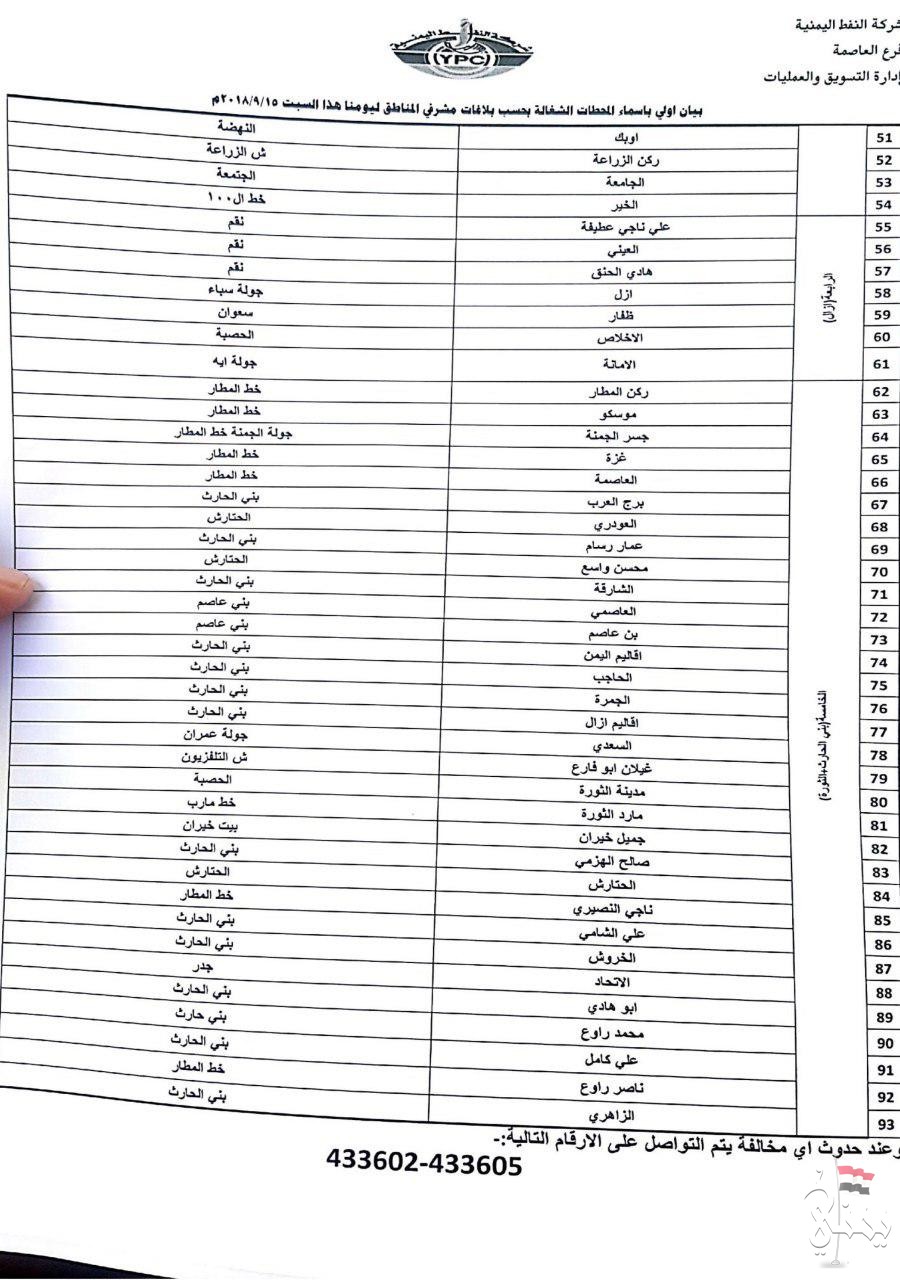 شركة النفط اليمنية
فرع العاصمة
إدارة التسويق والعمليات
شركة النفط اليمنية
YPC
بيان اولي باسماء المحطات الشغالة بحسب بلاغات مشرفي المناطق ليومنا هذا السبت ٢٠١٨/٩/١٥م
51 اوبك النهضة
52 ركن الزراعة ش الزراعة
53 الجامعة الجتمعة
54 الخير خط ال١٠٠
الرابعة(ازال)
55 علي ناجي عطيفة نقم
56 العيني نقم
57 هادي الحنق نقم
58 ازل جولة سباء
59 ظفار سعوان
60 الاخلاص الحصبة
61 الامانة جولة ايه
الخامسة(بني الحارث+الثورة)
62 ركن المطار خط المطار
63 موسكو خط المطار
64 جسر الجمنة جولة الجمنة خط المطار
65 غزة خط المطار
66 العاصمة خط المطار
67 برج العرب بني الحارث
68 العودري الحتارش
69 عمار رسام بني الحارث
70 محسن واسع الحتارش
71 الشارقة بني الحارث
72 العاصمي بني عاصم
73 بن عاصم بني عاصم
74 اقاليم اليمن بني الحارث
75 الحاجب بني الحارث
76 الجمرة بني الحارث
77 اقاليم ازال بني الحارث
78 السعدي جولة عمران
79 غيلان ابو فارع ش التلفزيون
80 مدينة الثورة الحصبة
81 مارد الثورة خط مارب
82 جميل خيران بيت خيران
83 صالح الهزمي بني الحارث
84 الحتارش الحتارش
85 ناجي النصيري خط المطار
86 علي الشامي بني الحارث
87 الخروش بني الحارث
88 الاتحاد جدر
89 ابو هادي بني الحارث
90 محمد راوع بني حارث
91 علي كامل بني الحارث
92 ناصر راوع خط المطار
93 الزاهري بني الحارث
وعند حدوث اي مخالفة يتم التواصل على الارقام التالية:-
433602-433605